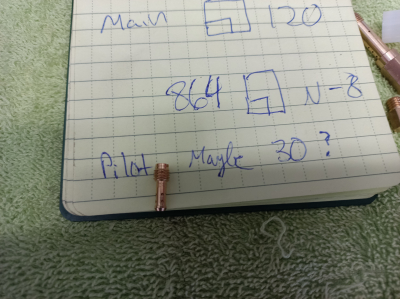 Main 120
864 N-8
Pilot Maybe 30?